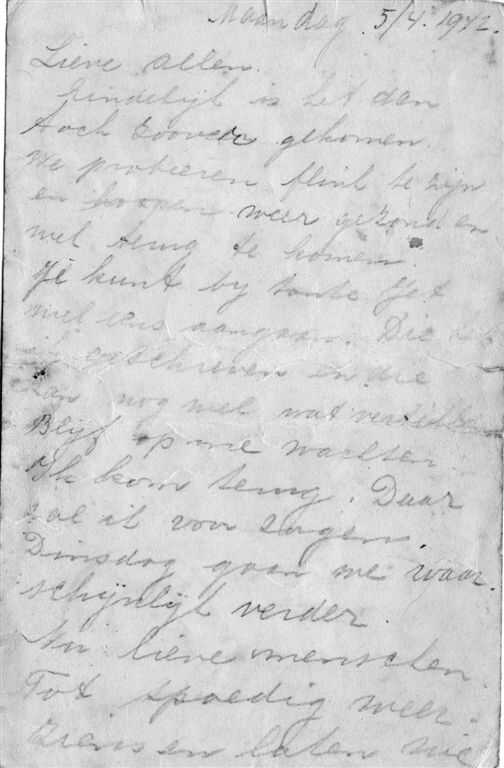 Maandag 5/4. 1942.
Lieve allen.
Eindelijk is het dan
toch zoover gekomen.
We probeeren flink te zijn
en hoopen weer gezond en
wel terug te komen.
Je kunt by tante Jet
wel eens aangaan. Die
geschreven en die
kan nog wel wat vertellen
Blijf op me wachten
Ik kom terug. Daar
zal ik voor zorgen.
Dinsdag gaan we waar-
schijnlijk verder.
Nu lieve menschen.
Tot spoedig weer-
ziens en laten we